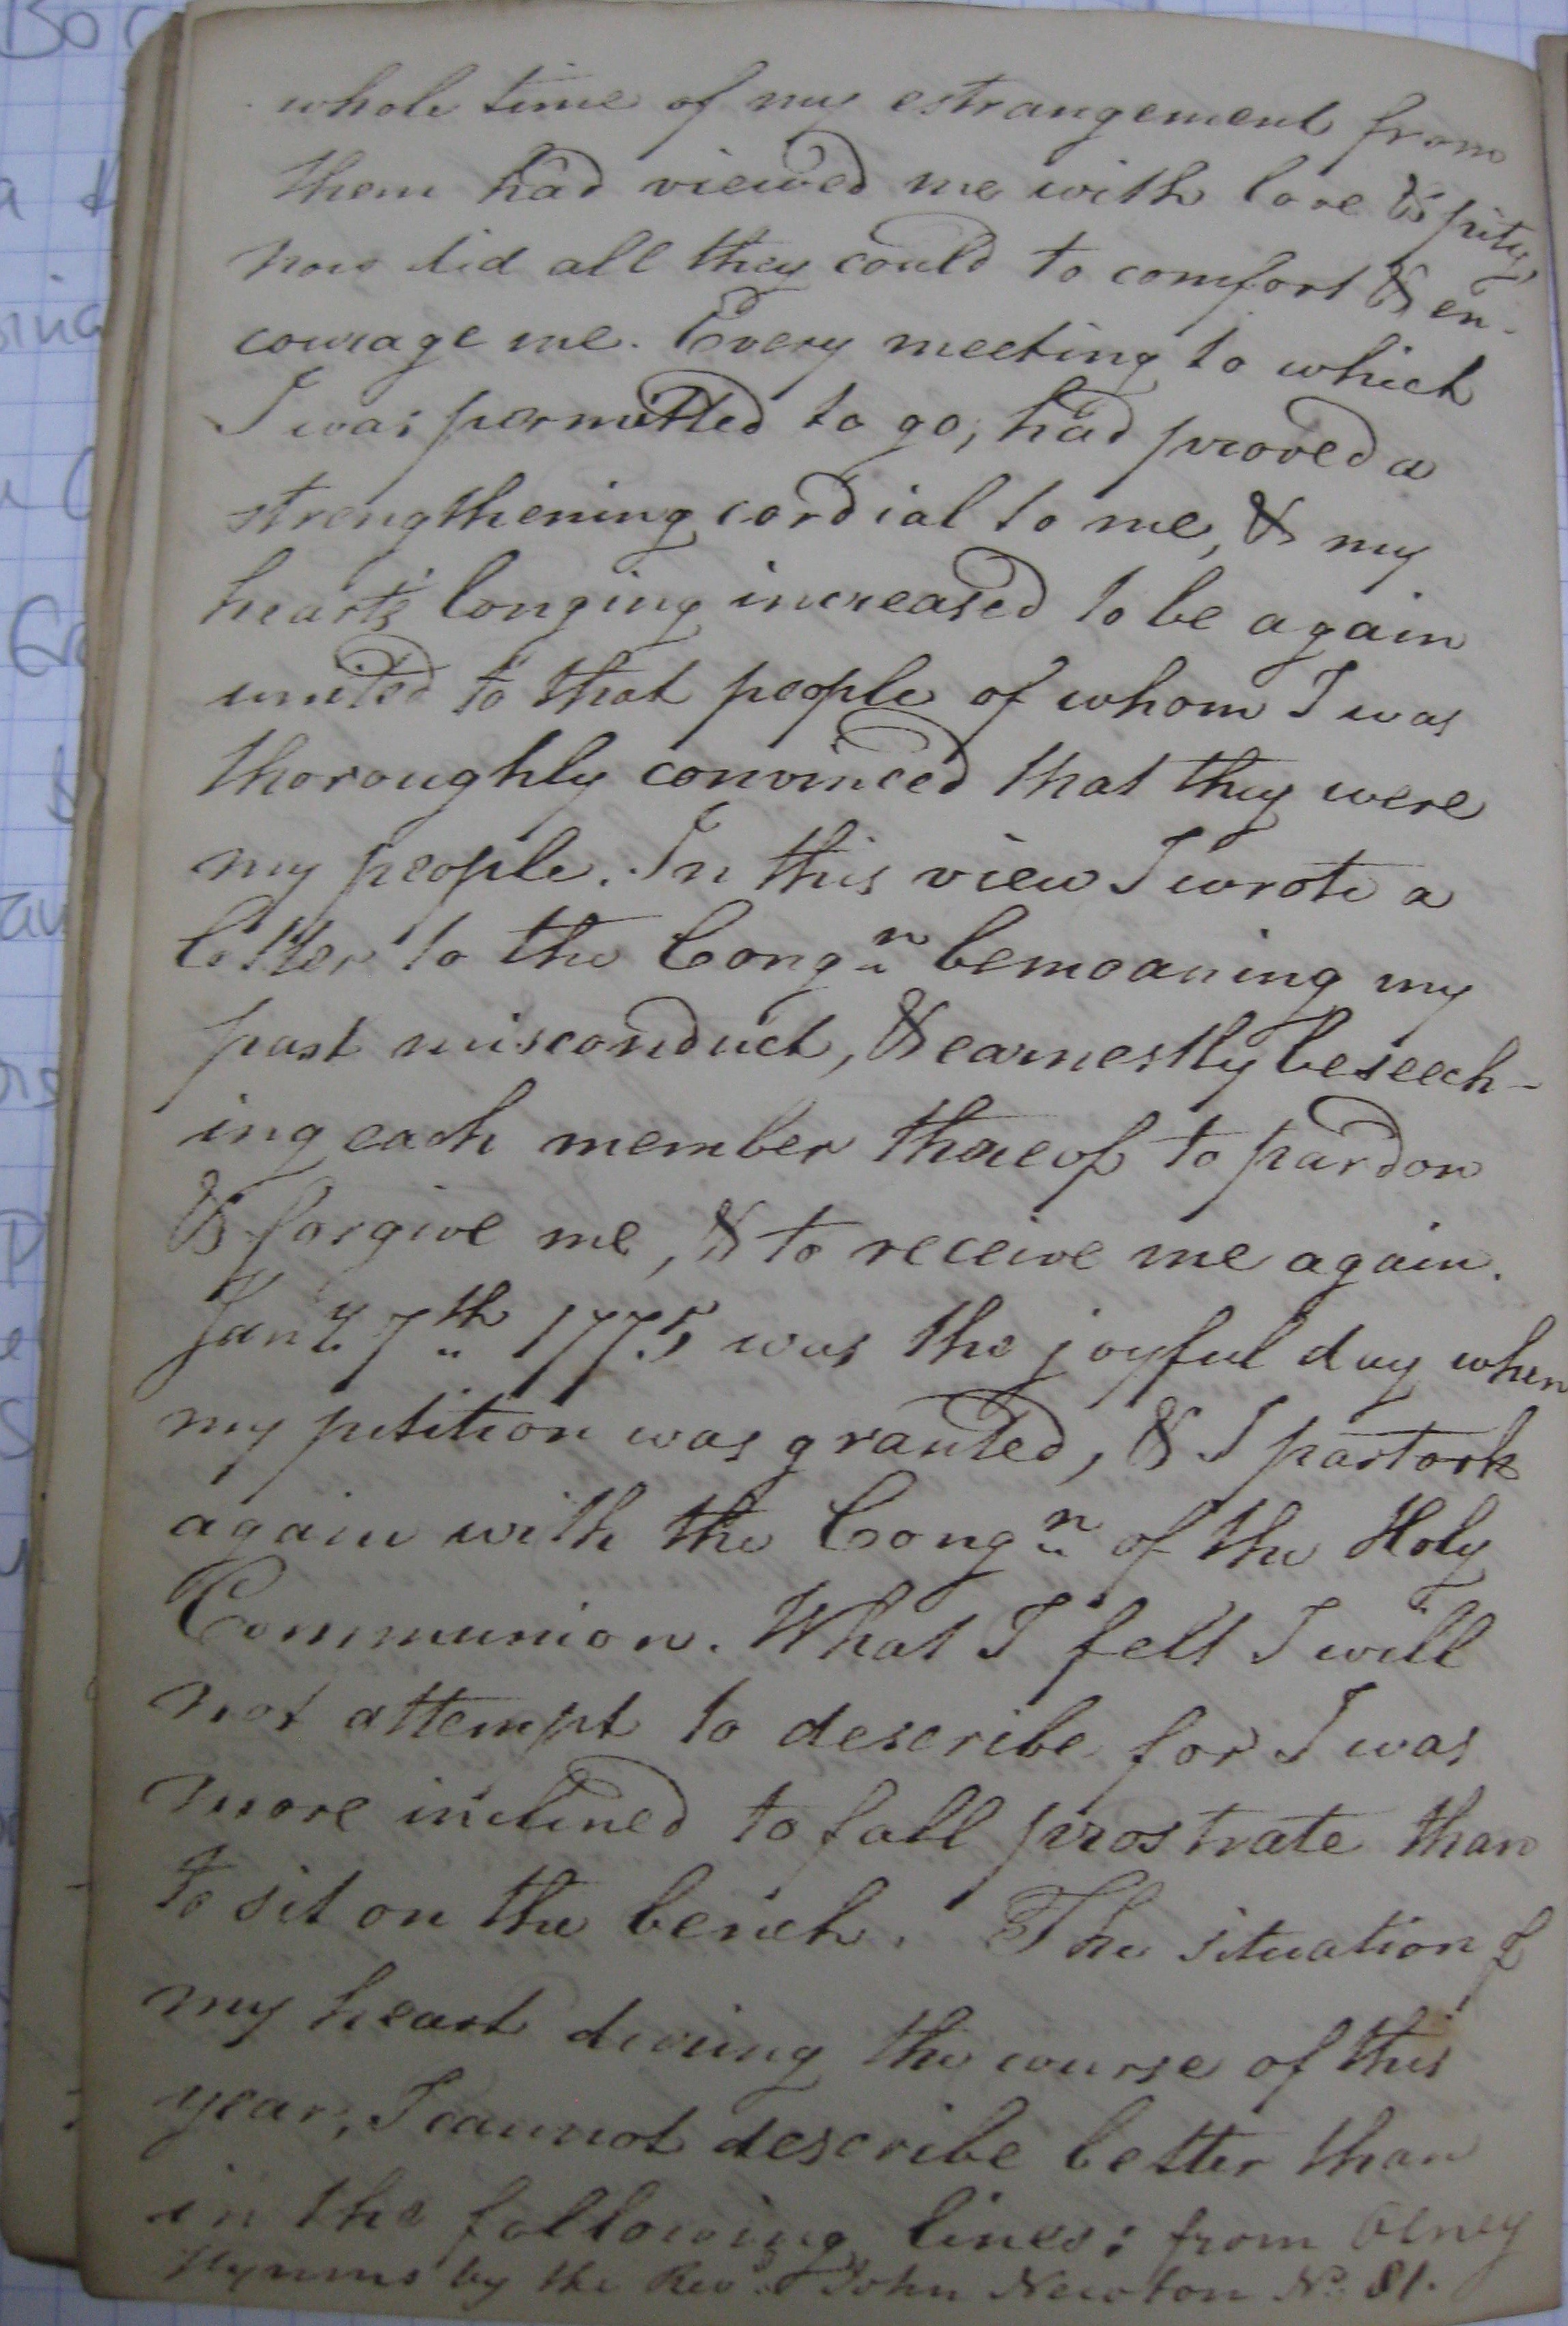 whole time of my estrangement from
them had viewed me with love & pity,
now did all they could to comfort & en-
courage me. Every meeting to which
I was permitted to go, had proved a
strengthening cordial to me, & my
heart's longing increased to be again
united to that people of whom I was
thoroughly convinced that they were
my people. In this view I wrote a
letter to the Congn bemoaning my
past misconduct, & earnestly beseech-
ing each member thereof to pardon
& forgive me, & to receive me again.
Jany. 7th 1775 was the joyful day when
my petition was granted, & I partook
again with the Congn of the Holy
Communion. What I felt I will
not attempt to describe for I was
more inclined to fall prostrate than
to sit on the bench. The situation of
my heart during the course of this
year, I cannot describe better than
in the following lines: from Olney
Hymns by the Revd John Newton No. 81.